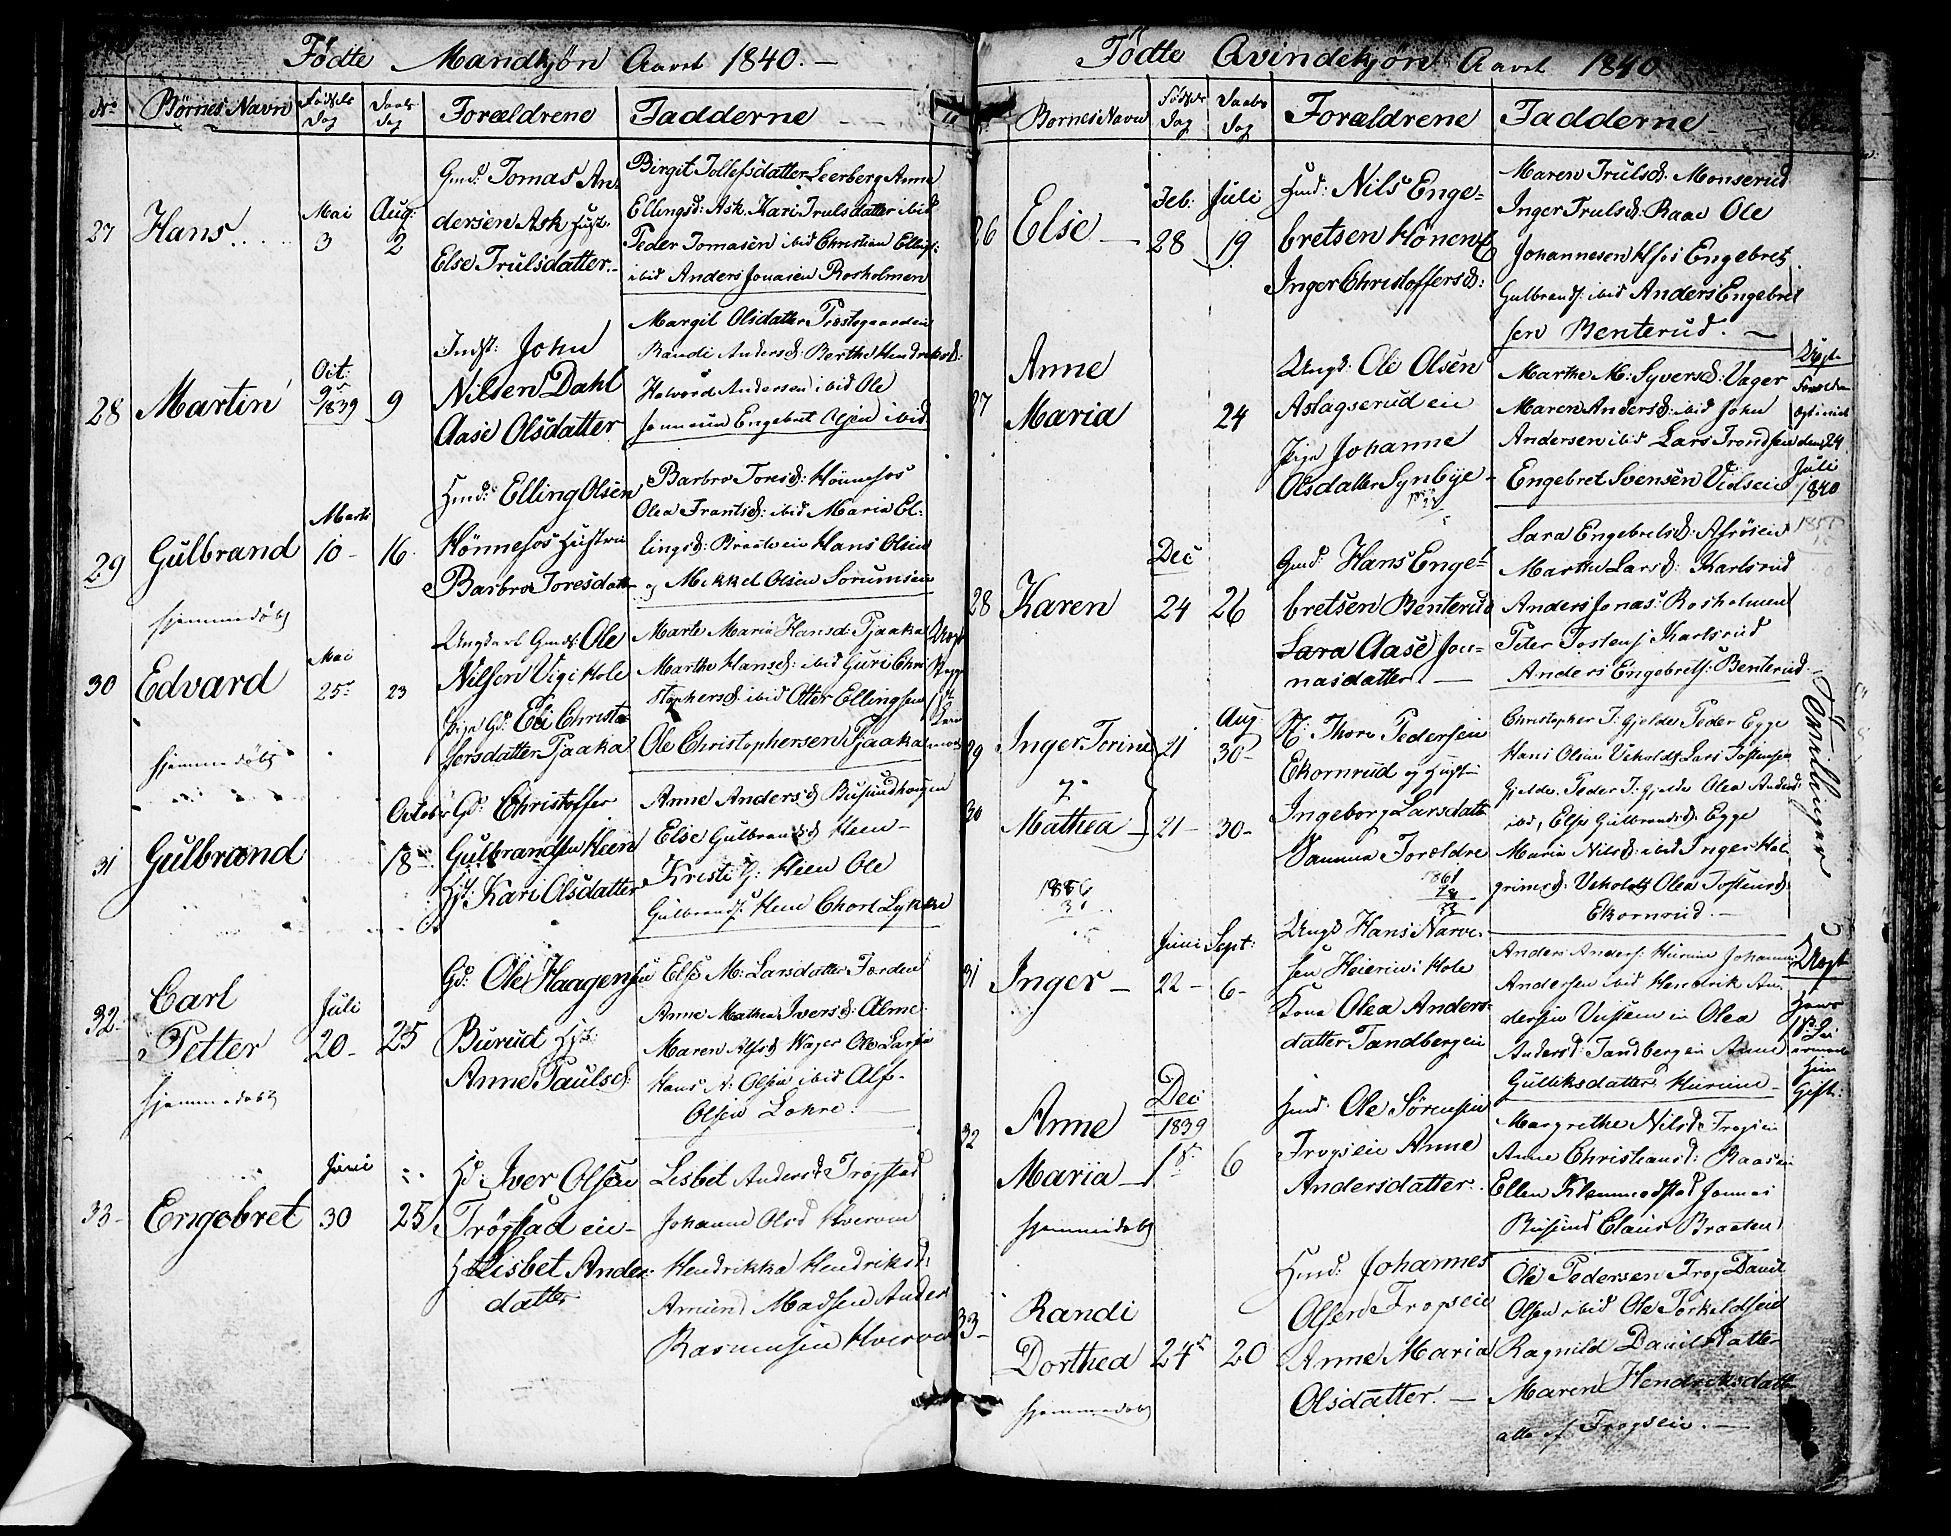 Fødte Mandkjøn Aaret 1840. –
No Børnes Navn Fødsels Dag Daabs Dag Forældrene Fadderne
27 Hans Mai 3 Aug: 2
Gmd: Tomas An-
dersen Ask Hust.
Else Trulsdatter
Birgit Tollefsdatter Leerberg Anne
Ellingsd: Ask. Kari Trulsdatter ibid
Peder Tomasen ibid Christian Ellings:
ibid Anders Jonasen Rosholmen
28 Martin Oct: 9de 1839 9
Indst: John
Nilsen Dahl
Aase Olsdatter
Margit Olsdatter Præstegaarden
Randi Andersd: Berthe Hendriksd:
Halvord Andersen ibid Ole
Engebret Olsen ibid
29 Gulbrand Marts 10 – 16
hjemmedøbt
Hmd: Elling Olsen
Hønnefos Hustru
Barbro Toresdatter
Barbro Toresd: Hønnefos
Olea Frantsd: ibid Maria El-
lingsd: Braatveie Hans Olsen
og Mikkel Olsen Sorumseie
30 Edvard Mai 25de 23
hjemmedøbt
Ungkarl Gmds: Ole
Nilsen Vigi Hole
Pige Gd: Eli Christo
fersdatter Tjaaka
Marte Maria Hansd: Tjaaka
Marthe Hansd: ibid Guri Chri
stophersd: ibid Otter Ellingsen
Ole Christophersen Tjaaka
Uægt
31 Gulbrand Octobr 18
Gd: Christoffer
Gulbrandsen Heen
Hst: Kari Olsdatter
Anne Andersd Busundhougen
Else Gulbrandsd Heen –
Kristi G: Heen Ole
Gulbrands: Heen Lykke
32 Carl
Petter Juli 20 – 25
hjemmedøbt
Gd: Ole Haagensen
Burud Hst:
Anne Paulsd:
Else M: Larsdatter Færden
Anne Mathea Iversd: Alme
Maren Alfsd Wager Ole Larsen
Hans A: Olsen ibid Alf
Olsen Lohre. –
33 Engebret Juni 30 25
Hd: Iver Olsen
Trøgstad eie –
H: Lisbet Anders
datter
Lisbet Andersd: Trøgstad
Johanne Olsd Hverven
Hendrikka Hendriksd:
Amund Madsen Anders
Rasmussen Hverven
Fødte Qvindekjøn Aaret 1840
Børnes Navn Fødsels Dag Daabs Dag Forældrene Fadderne
26 Else – Feb: 28 Juli 19
Hmd: Nils Enge-
bretsen Hønen
Inger Christoffersd:
Maren Trulsd: Monserud
Inger Trulsd: Raae Ole
Johannesen Engebret
Gulbrands: ibid Anders Engebret
sen Benterud. –
27 Anne
Maria 24
Ungk: Ole Olsen
Aslagserud eie
Pige Johanne
Olsdatter Synbye
Marthe M: Syversd: Vager
Maren Andersd: ibid John
Andersen ibid Lars Trondsen
Engebret Svensen Vidseie
Uægte
den 24
Juli
1840
28 Karen Dec 24 26
Gmd: Hans Enge-
bretsen Benterud
Sara Aase Jon-
nasdatter. –
Sara Engebretsd:
Marthe Larsd: Karlsrud
Anders Jonas: Rosholmen
Peter Tostens: Karlsrud
Anders Engebrets: Benterud –
29 Inger Torine 21 Aug: 30 –
og
30 Mathea – 21 – 30 –
Thore Pedersen
Ekornrud og Hust:
Ingeborg Larsdatter
Samme Forældre
Christopher T: Gjelde Peder Egge
Hans Olsen Veholdt Lars Tostensen
Gjelde. Peder T: Gjelde Olea Andersd:
ibid, Else Gulbrandsd: Egge
Maria Nilsd: ibid Inger Hal-
grimsd: Veholdt Olea Tostensd:
Ekornrud. –
Tvillinger
31 Inger – Juni 22 – Sept: 6 –
Ungk Hans Narve-
sen Heieren i Hole
Kone Olea Anders-
datter Tandbergeie
Anders Anders: Hurum Johannes
Andersen ibid Hendrik An-
dersen Olea
Andersd: Tandbergeie Anne
Gulliksdatter Hurum –
Uægt
Gift:
32 Anne
Maria – Dec 1839 1ste 6
hjemmedøbt
Hmd: Ole Sørensen
Frogseie Anne
Andersdatter.
Margrethe Nilsd: Frogseie
Anne Christiansd: Raaseie
Ellen Klemmedstad Jonas
Busund Claus Braaten
33 – Randi
Dorthea 24de 20
hjemmedøbt
Hmd: Johannes
Olsen Frogseie
Anne Maria
Olsdatter. –
Ole Pedersen Frog David
Olsen ibid Ole Torkeldseie
Ragnild Davidsdatter
Maren Hendriksdatter
alle af Frogseie. –